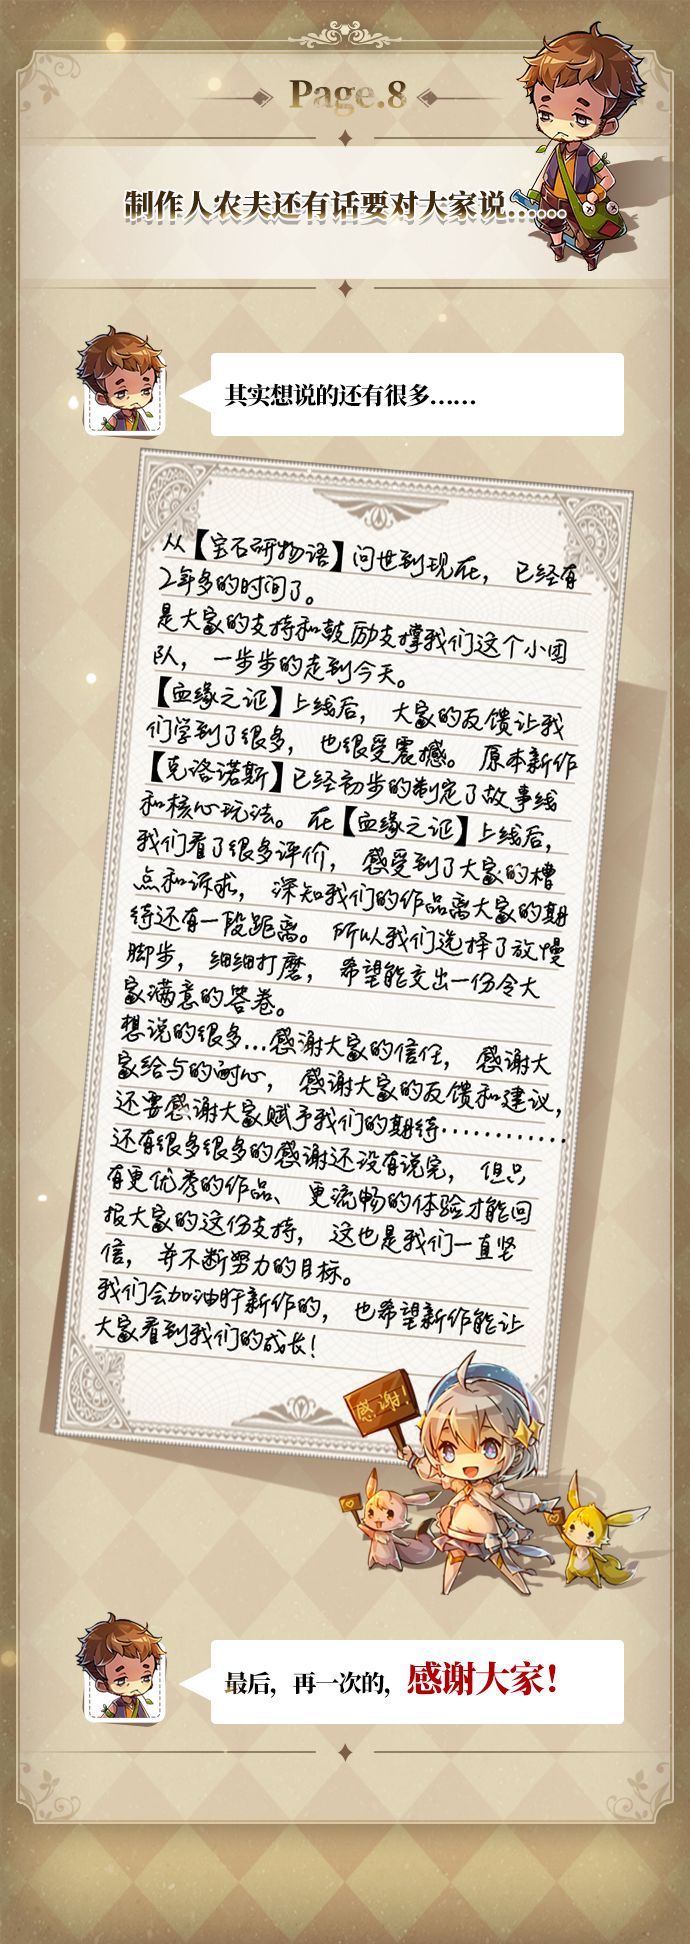 Page.8
制作人农夫还有话要对大家说……
其实想说的还有很多……
从【宝石研物语】问世到现在，已经有
2年多的时间了。
是大家的支持和鼓励支撑我们这个小团
队，一步步的走到今天。
【血缘之证】上线后，大家的反馈让我
们学到了很多，也很受震撼。原本新作
【克洛诺斯】已经初步的制定了故事线
和核心玩法。在【血缘之证】上线后，
我们看了很多评价，感受到了大家的槽
点和诉求，深知我们的作品离大家的期
待还有一段距离。所以我们选择了放慢
脚步，细细打磨，希望能交出一份令大
家满意的答卷。
想说的很多...感谢大家的信任，感谢大
家给与的耐心，感谢大家的反馈和建议，
还要感谢大家赋予我们的期待…………
还有很多很多的感谢还没有说完，但只
有更优秀的作品、更流畅的体验才能回
报大家的这份支持，这也是我们一直坚
信，并不断努力的目标。
我们会加油肝新作的，也希望新作能让
大家看到我们的成长！
感谢！
最后，再一次的，感谢大家！